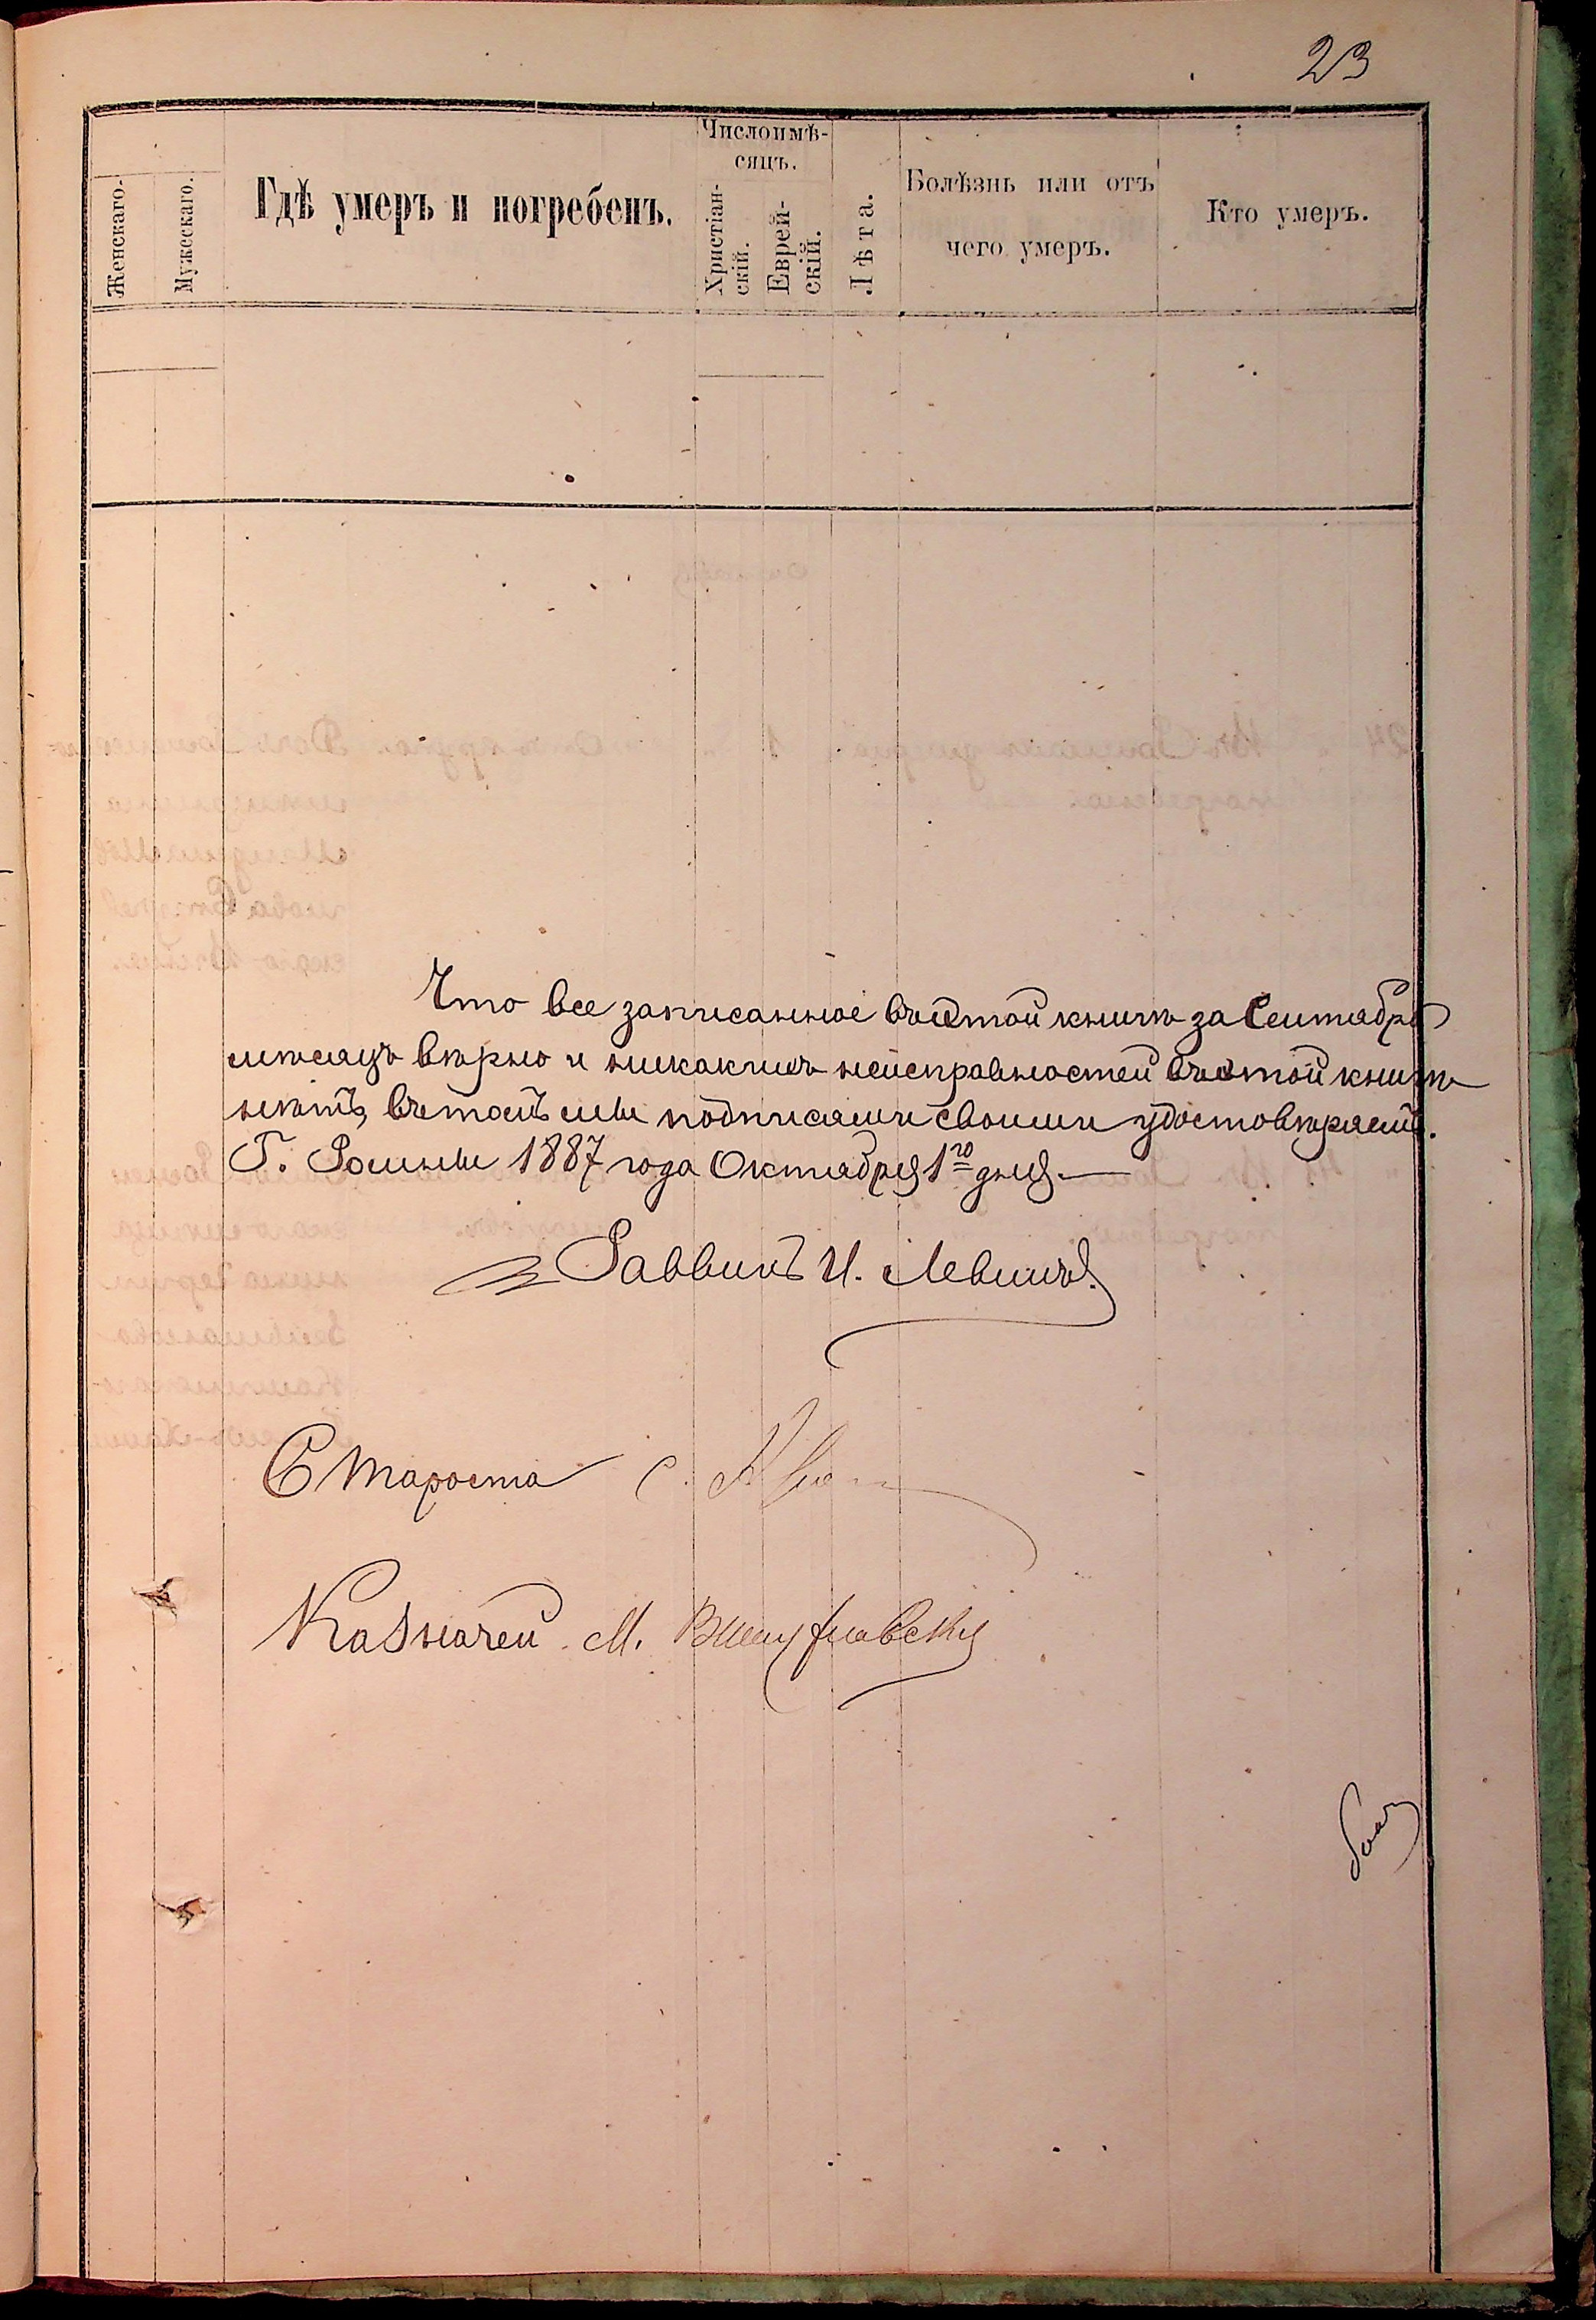 23
Женскаго.
Мужескаго.
Гдѣ умеръ и погребенъ.
Число и мѣ-
сяцъ.
Христіан-
скій.
Еврей-
скій.
Лѣта.
Болѣзнь или отъ
чего умеръ.
Кто умеръ.
Что все записанное въ этой книгѣ за Сентябрь
мѣсяцъ вѣрно и никакихъ неисправностей въ этой книгѣ
нѣтъ, въ томъ мы подписами своими удостовѣряемъ.
Г. Ромны 1887 года Октября 1го дня.
Раввинъ И. Левинъ.
Староста С.
Казначей М.